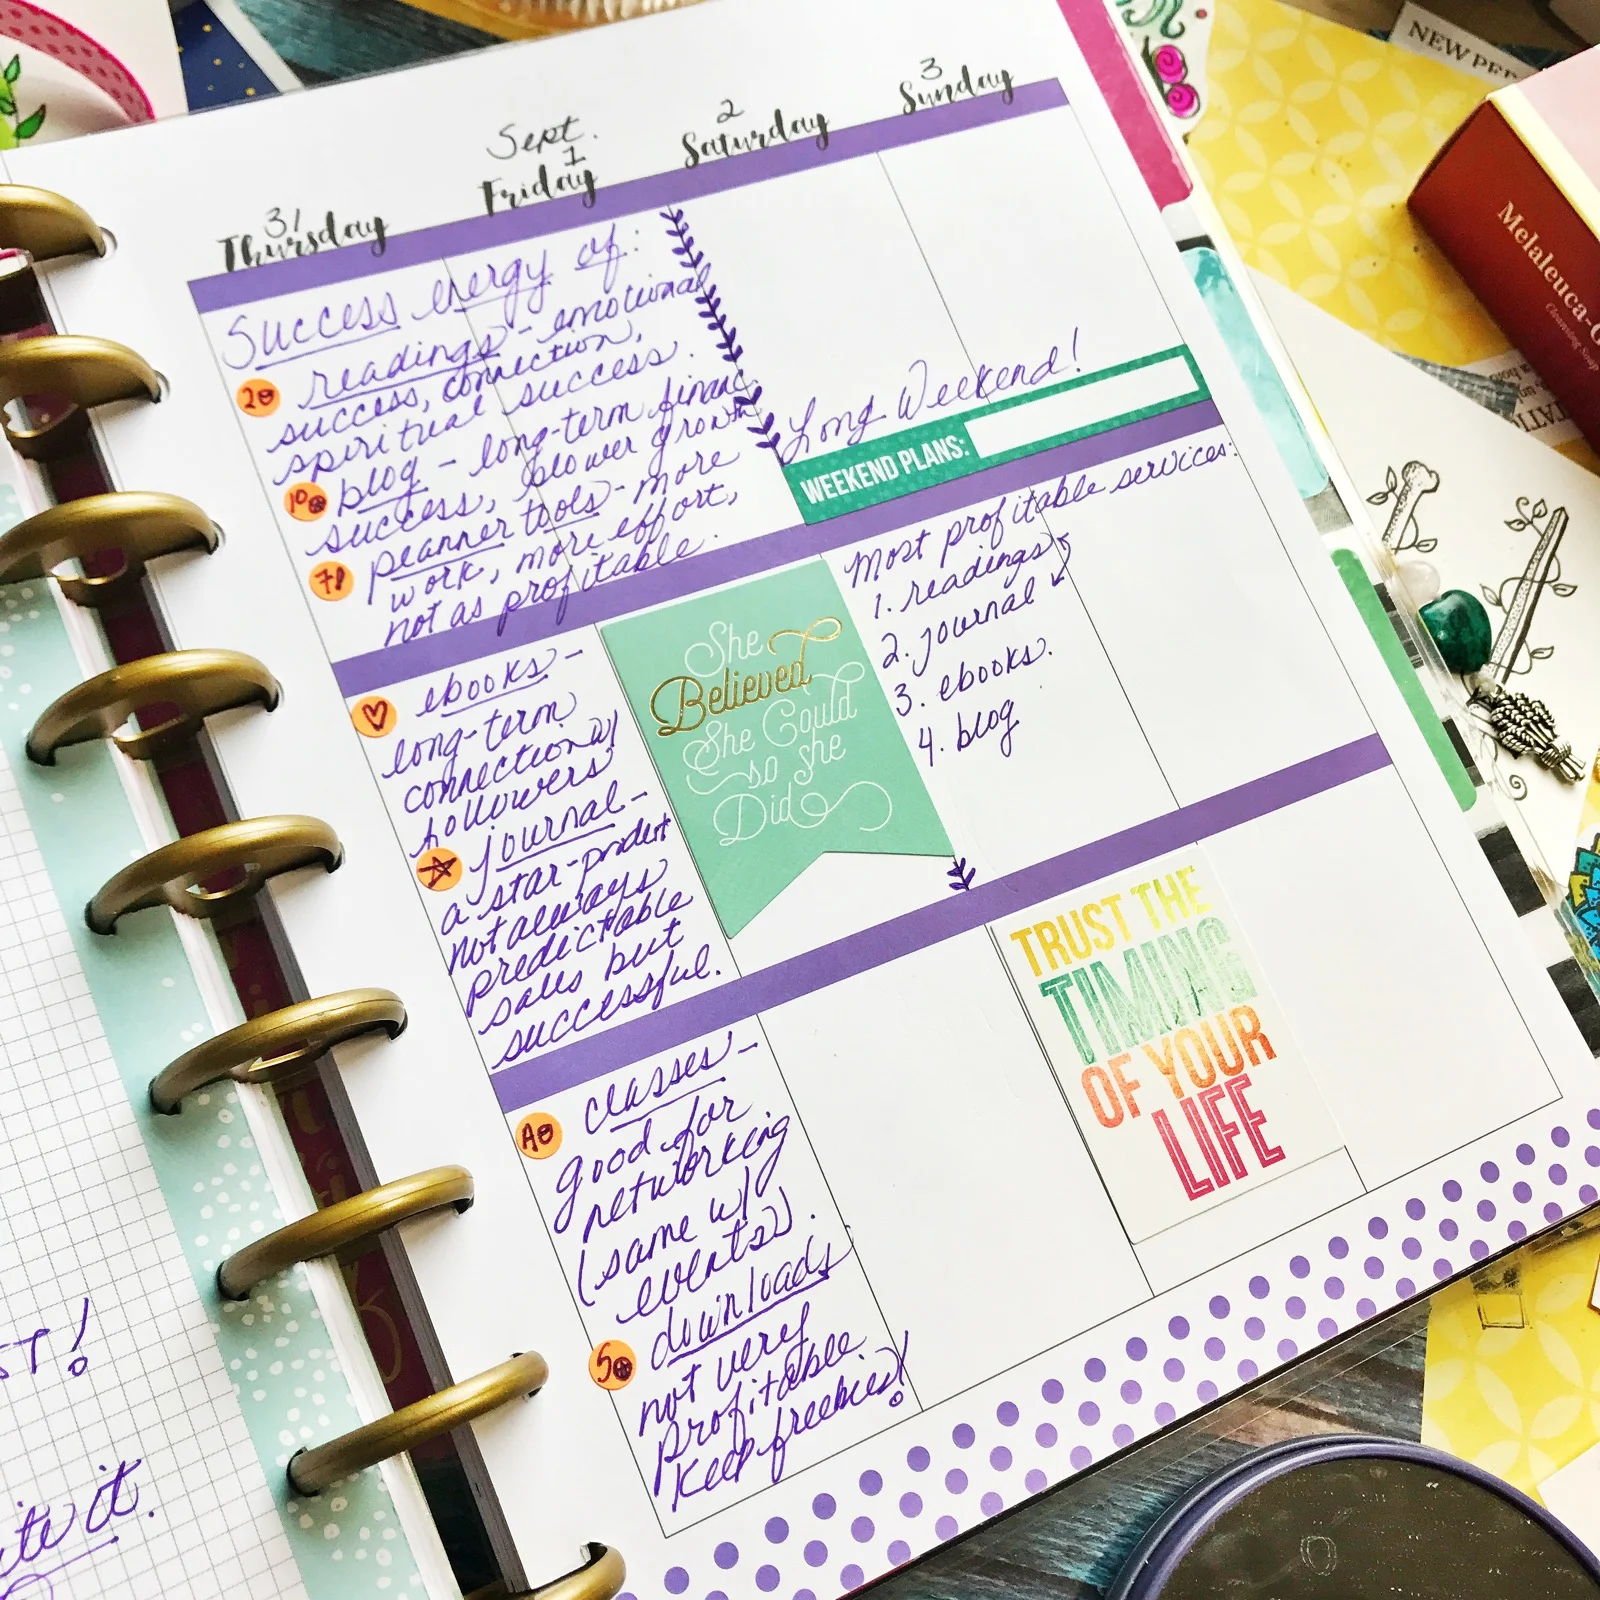 31
Thursday
Sept.
1
Friday
2
Saturday
3
Sunday
Success energy of:
readings - emotional
success, connection,
spiritual success.
blog - long-term financ
success, slower growth
planner tools - more
work, more effort,
not as profitable.
Long Weekend!
WEEKEND PLANS:
ebooks -
long-term
connection w/
followers
journal -
a star-product
not always
predictable
sales but
successful.
She
Believed
She Could
so she
Did
Most profitable services:
1. readings
2. journal
3. ebooks.
4. blog
classes -
good for
networking
(same w/
events).
downloads
not very
profitable.
Keep freebies!
TRUST THE
TIMING
OF YOUR
LIFE
NEW PER
Melaleuca-G
Cleansing Soap
ST!
ite it.